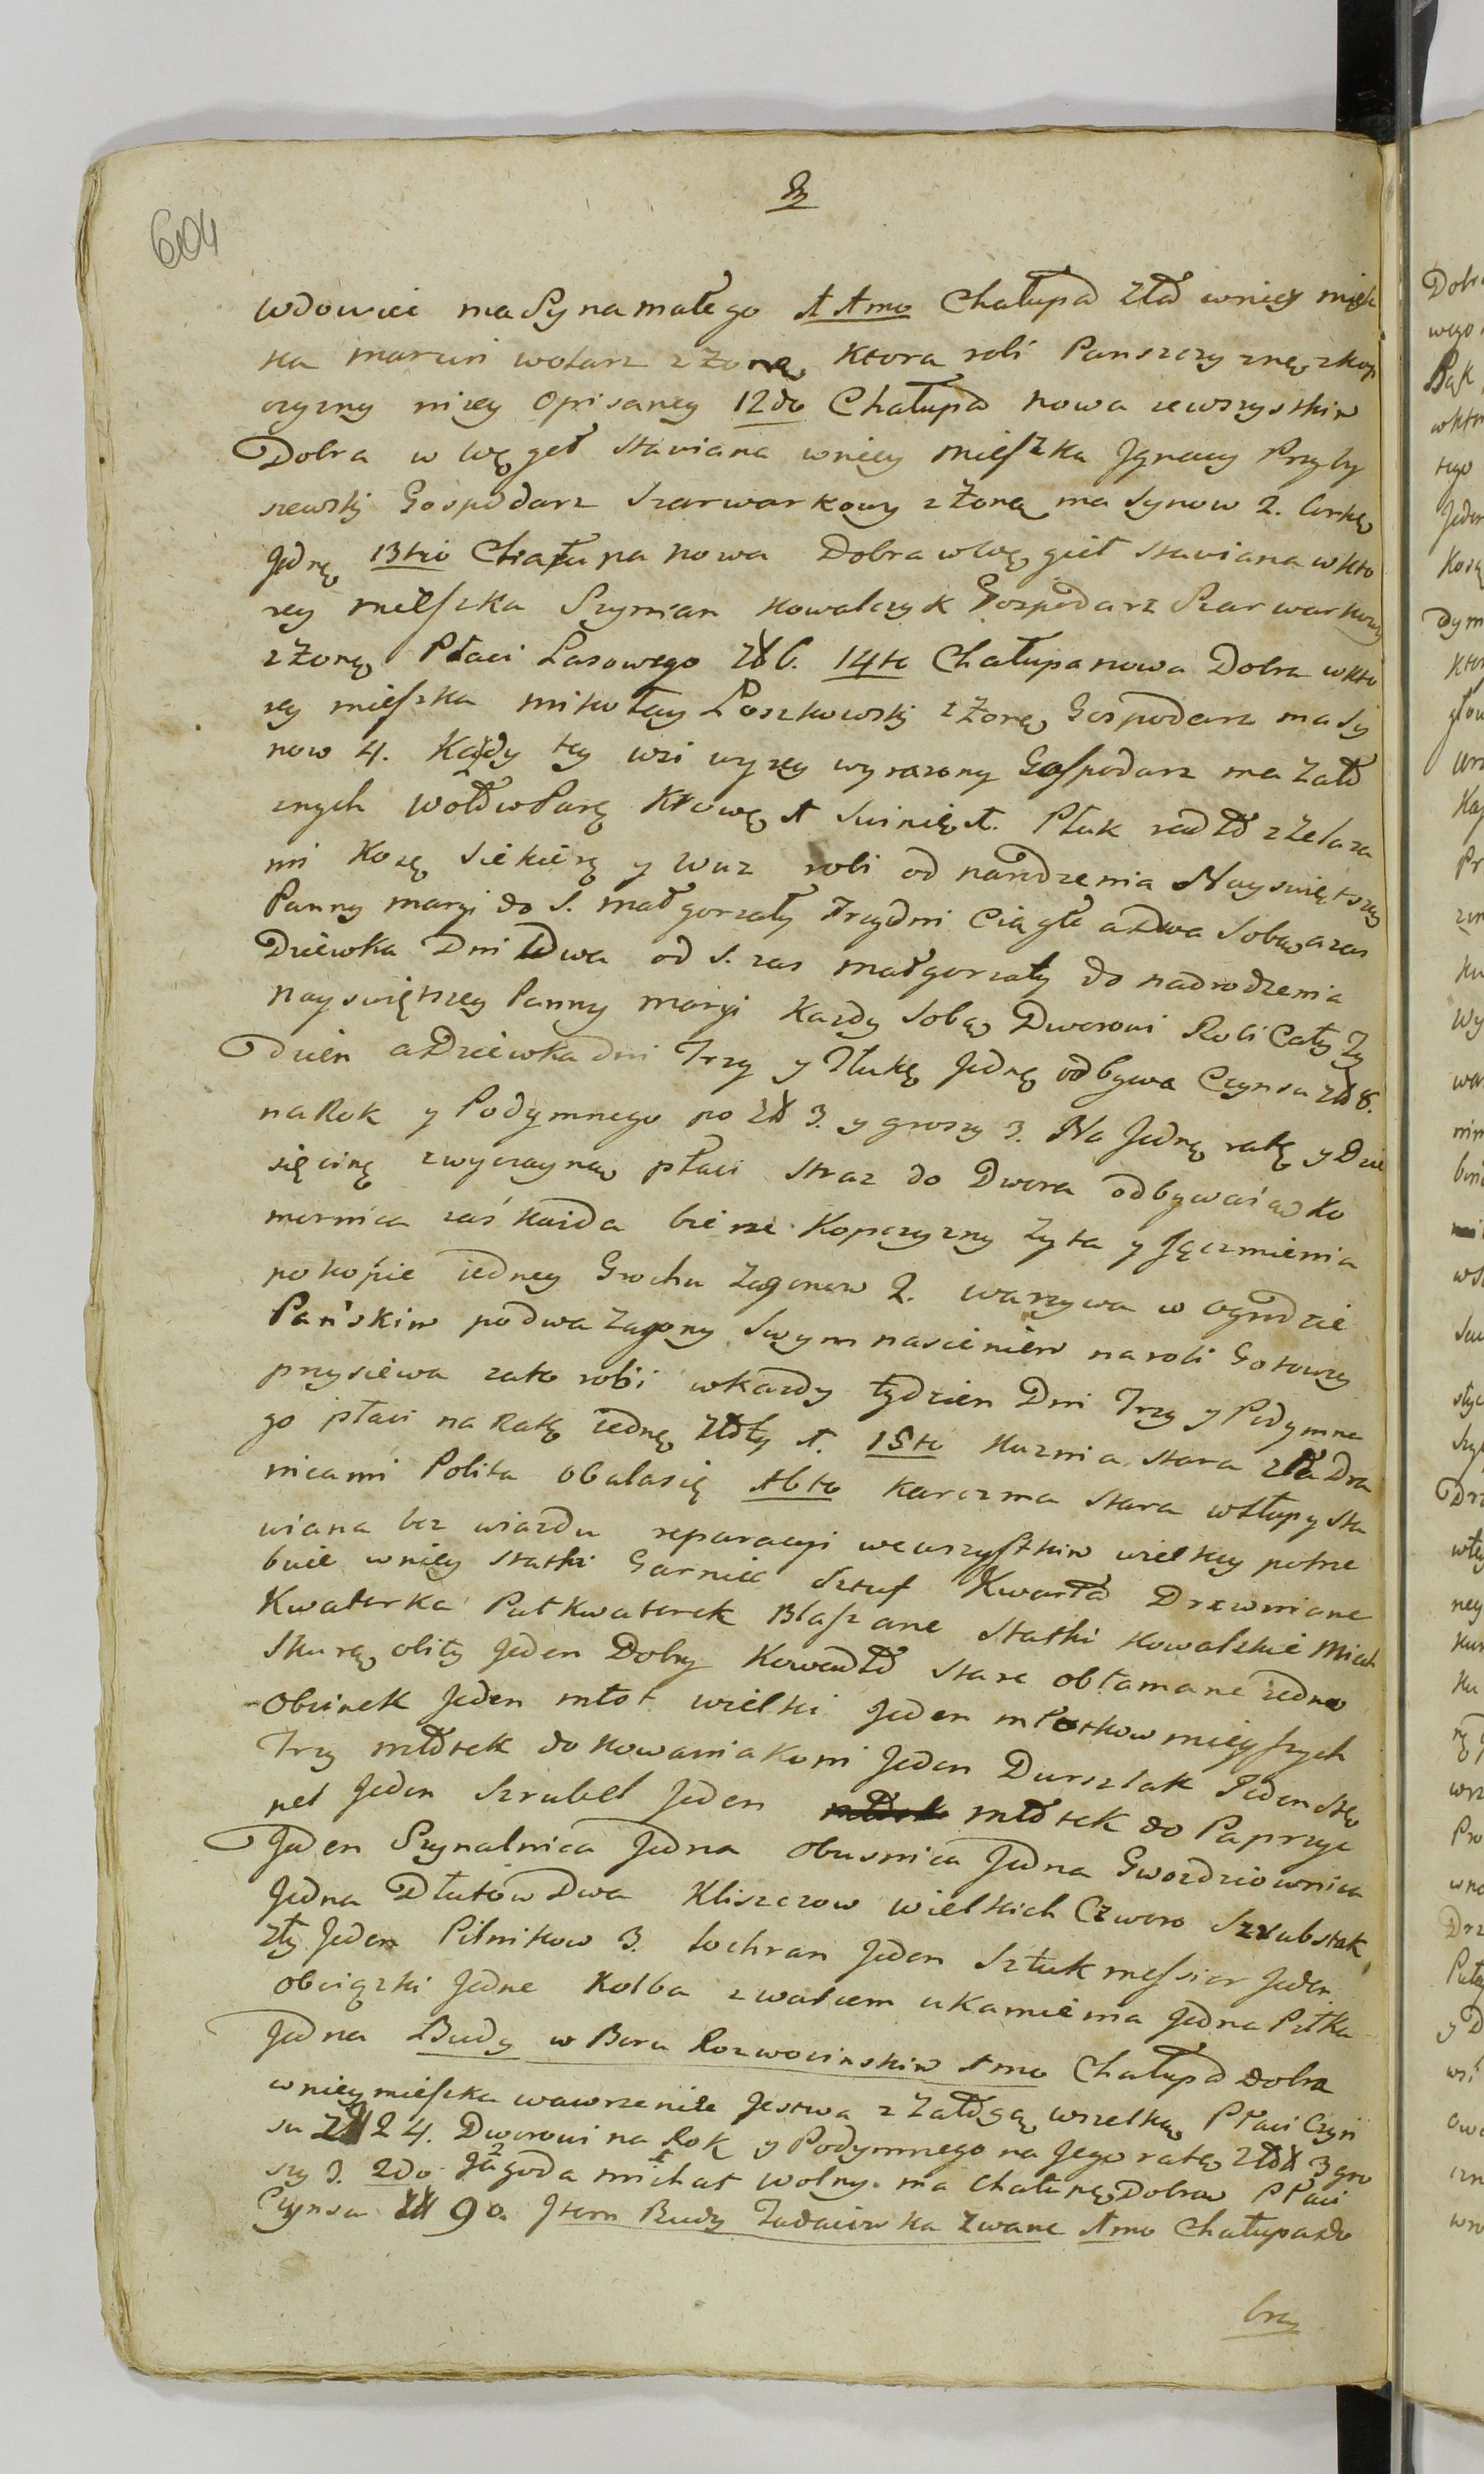 604
wdowiec ma Syna małego 11mo Chałupa zła wniey miesz
ka marcin wolarz z Żoną, ktora robi Panszczyznę z kop
czyzny nizey Opisaney 12do Chałupa nowa zewszystkim
Dobra w węgeł stawiana wniey mieszka Jgnacy Przyby
szewski Gospodarz Szarwarkowy z Żoną ma Synow 2. Corkę
Jedną 13tio Chałupa nowa Dobra wwęgieł stawiana w kto
rey mieszka Szymian Kowalczyk Gospodarz Szarwarkowy
z Żoną Płaci Lasowego zł 6. 14to Chałupa nowa Dobra w kto
rey mieszka mikołay Loszkowski z Żoną Gospodarz ma Sy
now 4. Każdy tey wsi wyzey wyrazony Gospodarz ma Zało
znych wołow Parę Krowę 1 Swinię 1. Płuk radło z Żelaza
mi Kosę Siekierę y Wuz robi od narodzenia Nayswiętszey
Panny maryi do S. małgorzaty Trzydni Ciągłe a Dwa Sobą a zas
Dziewka Dni Dwa od S. zas małgorzaty do nadrodzenia
nayswiętszey Panny maryi Kazdy Sobą Dworowi Robi Cały Ty
dzien a Dziewka dni Trzy y Tłukę Jedną odbywa Czynszu zł 8.
na Rok y Podymnego po zł 3. y groszy 3. Na Jedną ratę y Dzie
sięcinę zwyczayną płaci straz do Dwora odbywaią Ko
mornica zaś kaida bierze Kopczyzny Żyta y Jęczmienia
po kopie iedney Grochu Zagonow 2. warzywa w ogrodzie
Pańskim po dwa Zagony Swym nasieniem na roli Gotowey
przysiewa za to robi w kazdy tydzien Dni Trzy y Podymne
go płaci na Ratę iedną Złoty 1. 15to Kuznia Stara zła Dra
nicami Polita obala się 16to Karczma Stara w słupy sta
wiana bez wiazdu reparacyi we wszystkim wielkiey potrze
buie w niey statki Garniec Sztuf Kwarta Drewniane
Kwaterka Puł kwaterek Blaszane Statki kowalskie Miech
Skurą obity Jeden Dobry Kowadło stare obłamane iedno
Obcinek Jeden młot wielki Jeden młotkow mieyszych
Trzy młotek do kowania koni Jeden Durszlak Jeden Stę
pel Jeden Szrubel Jeden młotek do Paprzyc
Jeden Szynalnica Jedna obusnica Jedna Gwozdziownica
Jedna Dłutow Dwa Kliszczow wielkich Czworo Szrubstak
zły Jeden Pilnikow 3. lochran Jeden Sztuk messior Jeden
obciązki Jedne Kolba z walcem u Kamienia Jedna Piłka
Jedna Budy w Boru Rozwocinskim 1mo Chałupa dobra
w niey mieszka wawrzeniec Jestwa z Załogą wszelką Płaci Czyn
szu zł 24. Dworowi na Rok y Podymnego na Jego ratę zł 3 gro
szy 3. 2do Jagoda michał wolny. ma Chałupę Dobrą Płaci
Czynszu zł 90. Jtem Budy Zadaiow Ka Zwane 1mo Chałupa do
bra